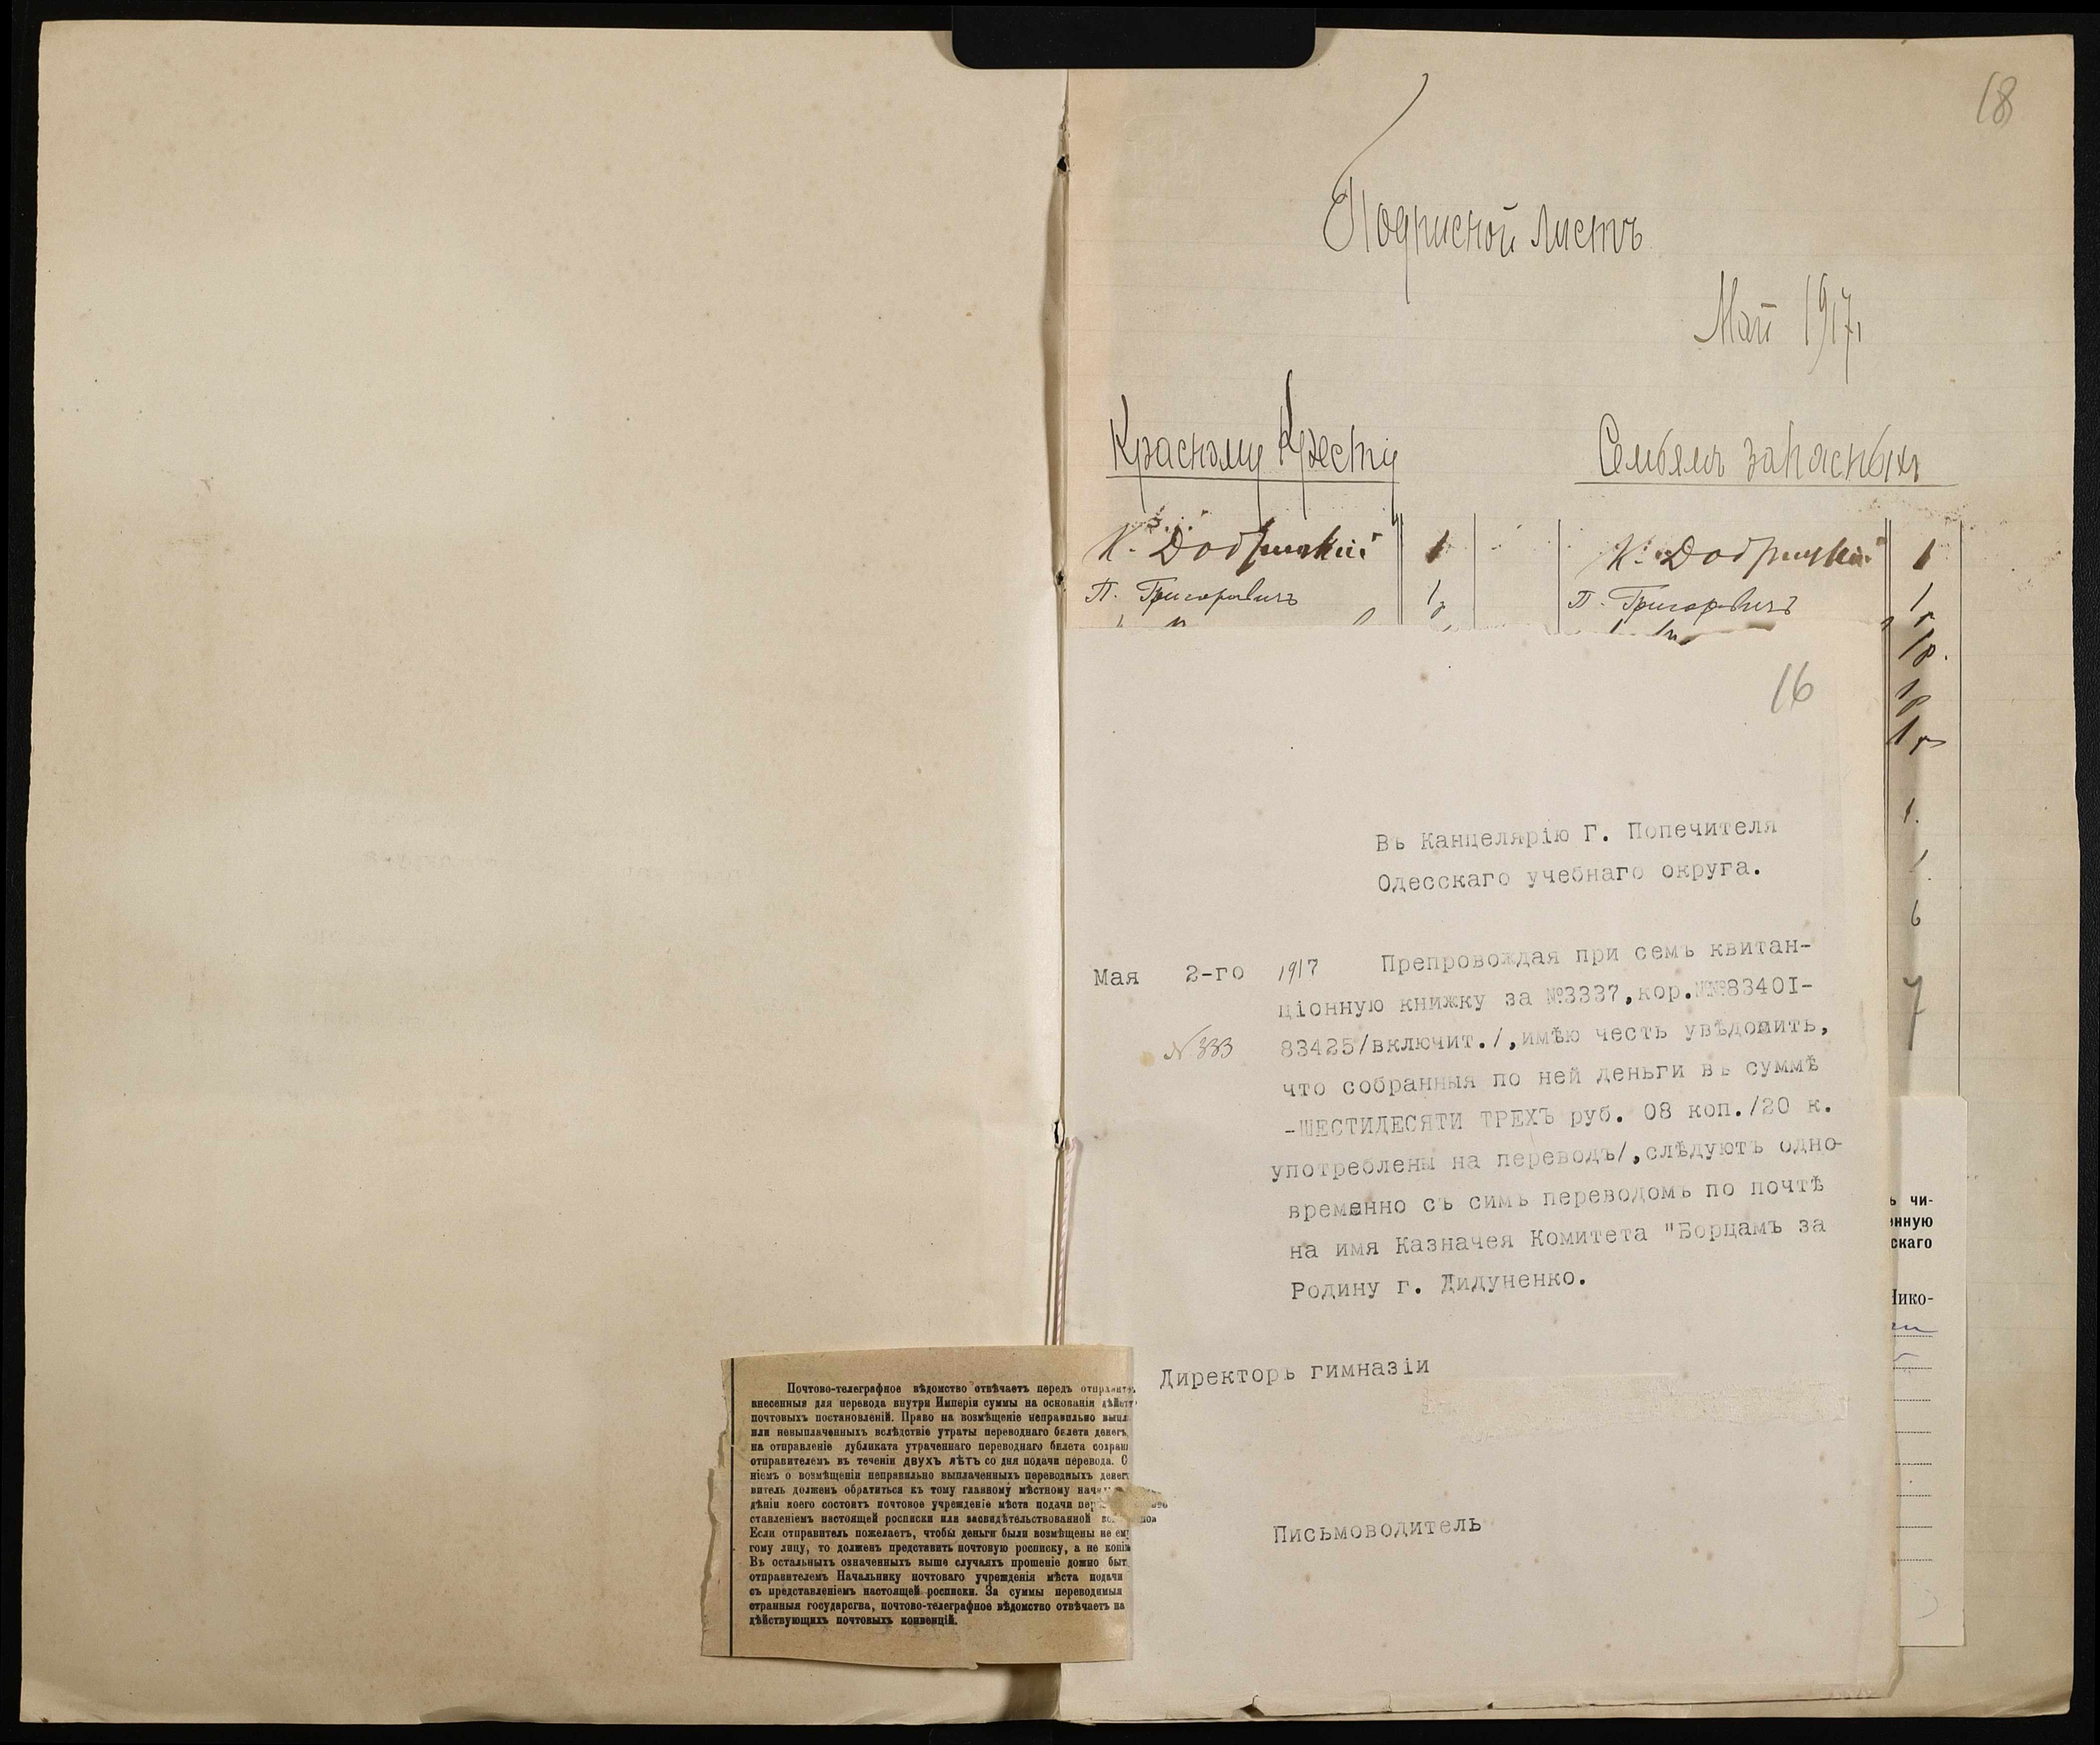 18
Подписной листъ
Май 1917г
Красному Кресту
Семьямъ запасныхъ
К. Добрицкій 1
К. Добрицкій 1
П. Григоровичъ 1р
П. Григоровичъ 1р
1р.
1р
1р
1.
1.
6
7
16
Въ Канцелярію Г. Попечителя
Одесскаго учебнаго округа.
Мая 2-го 1917
№ 333
Препровождая при семъ квитан-
ціонную книжку за №3337,кор.№№8340I-
83425/включит./,имѣю честь увѣдомить,
что собранныя по ней деньги въ суммѣ
-ШЕСТИДЕСЯТИ ТРЕХЪ руб. 08 коп./20 к.
употреблены на переводъ/,слѣдуютъ одно-
временно съ симъ переводомъ по почтѣ
на имя Казначея Комитета "Борцамъ за
Родину г. Дидуненко.
Директоръ гимназіи
Письмоводитель
ъ чи-
онную
скаго
Нико-
Почтово-телеграфное вѣдомство отвѣчаетъ передъ отправите
внесенныя для перевода внутри Имперіи суммы на основаніи дѣйст
почтовыхъ постановленій. Право на возмѣщеніе неправильно выпл
или невыплаченныхъ вслѣдствіе утраты переводнаго билета денегъ,
на отправленіе дубликата утраченнаго переводнаго билета сохран
отправителемъ въ теченіи ДВУХЪ ЛѢТЪ со дня подачи перевода. С
ніемъ о возмѣщеніи неправильно выплаченныхъ переводныхъ денег
витель долженъ обратиться къ тому главному мѣстному нача
дѣніи коего состоитъ почтовое учрежденіе мѣста подачи пер
ставленіемъ настоящей росписки или засвидѣтельствованной
Если отправитель пожелаетъ, чтобы деньги были возмѣщены не ем
гому лицу, то долженъ представить почтовую росписку, а не копі
Въ остальныхъ означенныхъ выше случаяхъ прошеніе должно быт
отправителемъ Начальнику почтоваго учрежденія мѣста подачи
съ представленіемъ настоящей росписки. За суммы переводимыя
странныя государства, почтово-телеграфное вѣдомство отвѣчаетъ на
дѣйствующихъ почтовыхъ конвенцій.